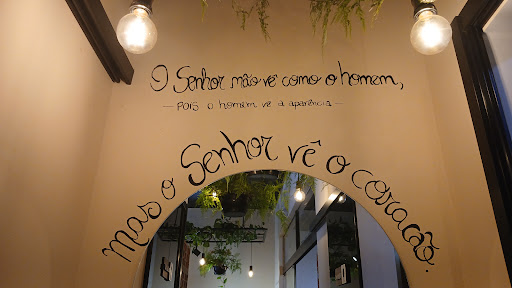 O Senhor não vê como o homem,
— pois o homem vê a aparência —
mas o Senhor vê o coração.